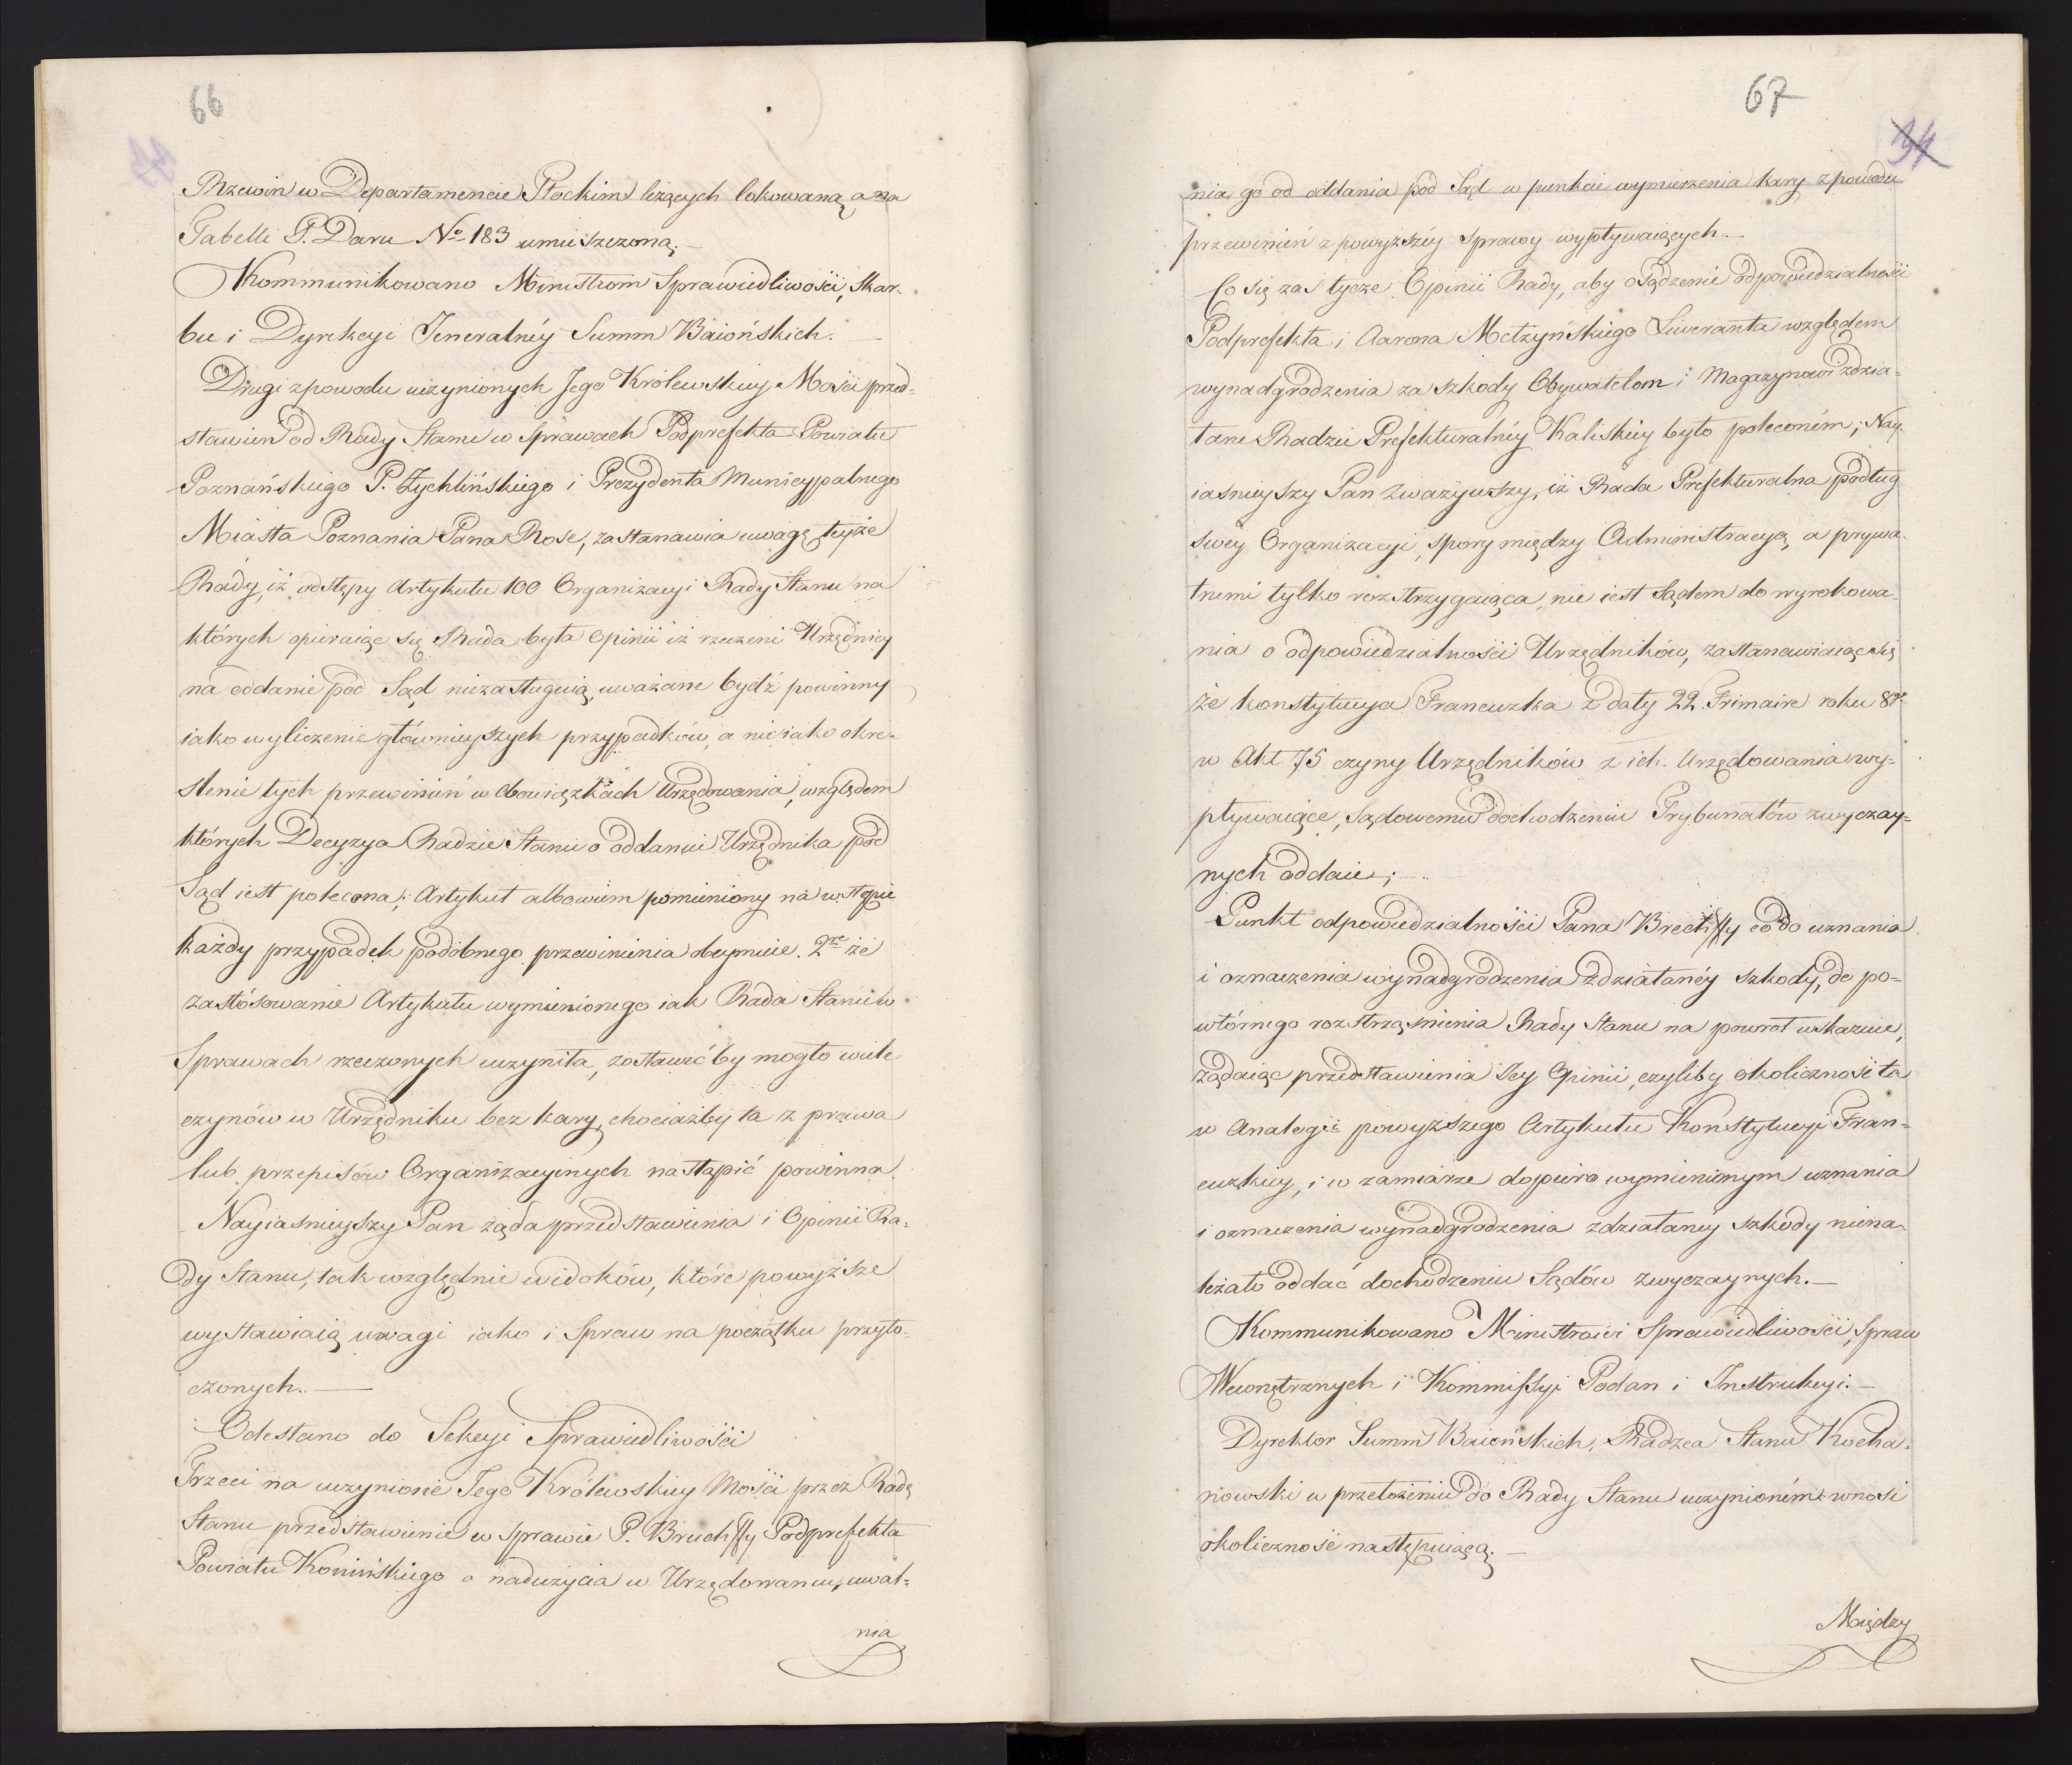 66
Rzewin w Departamencie Płockim leżących lokowaną a na
Tabelli P. Daru No 183 umieszczoną. —
Kommunikowano Ministrom Sprawiedliwości, Skar-
bu i Dyrekcyi Jeneralnéy Summ Baiońskich. —
Drugi z powodu uczynionych Jego Królewskiey Mości przed-
stawień od Rady Stanu w Sprawach Podprefekta Powiatu
Poznańskiego P. Żychlińskiego i Prezydenta Municypalnego
Miasta Poznania Pana Rose, zastanawia uwagę teyże
Rady, iż odstępy Artykułu 100 Organizacyi Rady Stanu na
których opieraiąc się Rada była opinii iż rzeczeni Urzędnicy
na oddanie pod Sąd niezasługuią, uważane bydź powinny
iako wyliczenie głównieyszych przypadków, a nie iako okre-
slenie tych przewinień w obowiązkach Urzędowania, względem
których Decyzya Radzie Stanu o oddaniu Urzędnika pod
Sąd iest polecona; Artykuł albowiem pomieniony na wstępie
każdy przypadek podobnego przewinienia obeymuie. 2re że
zastósowanie Artykułu wymienionego iak Rada Stanu w
Sprawach rzeczonych uczyniła, zostawić by mogło wiele
czynów w Urzędniku bez kary, chociażby ta z prawa
lub przepisów Organizacyinych nastąpić powinna.
Nayiasnieyszy Pan żąda przedstawienia i Opinii Ra-
dy Stanu, tak względnie widoków, które powyższe
wystawiaią uwagi iako i Spraw na początku przyto-
czonych. —
Odesłano do Sekcyi Sprawiedliwości
Trzeci na uczynione Jego Królewskiey Mości przez Radę
Stanu przedstawienie w sprawie P. Bruchssy Podprefekta
Powiatu Konińskiego o nadużycia w Urzędowaniu, uwal-
nia
67
34
nia go od oddania pod Sąd w punkcie wymierzenia kary z powodu
przewinień z powyższéy sprawy wypływaiących. —
Co się zas tycze Opinii Rady, aby osądzenie odpowiedzialności
Podprefekta i Aarona Metzyńskiego Liweranta względem
wynadgrodzenia za szkody Obywatelom i Magazynowi zdzia-
łane Radzie Prefekturalnéy Kaliskiéy było poleconém; Nay-
iasnieyszy Pan zważywszy, iż Rada Prefekturalna podług
swéy Organizacyi, spory między Administracyą, a prywa-
tnemi tylko rozstrzygaiąca, nie iest Sądem do wyrokowa-
nia o odpowiedzialności Urzędników, zastanawiaiąc się
że konstytucya Francuzka z daty 22. Frimaire roku 8go
w Akt 75 czyny Urzędników z ich Urzędowania wy-
pływaiące, Sądowemu dochodzeniu Trybunałów zwyczay-
nych oddaie; —
Punkt odpowiedzialności Pana Brechssy co do uznania
i oznaczenia wynadgrodzenia zdziałanéy szkody, do po-
wtórnego rozstrząśnienia Rady Stanu na powrot wskazuie,
żądaiąc przedstawienia iey Opinii, czyliby okoliczność ta
w Analogii powyższego Artykułu Konstytucyi Fran-
cuzkiey, i w zamiarze dopiero wymienionym uznania
i oznaczenia wynadgrodzenia zdziałaney szkody niena-
leżało oddać dochodzeniu Sądów zwyczaynych. —
Kommunikowano Ministrowi Sprawiedliwości, Spraw
Wewnętrznych i Kommissyi Podań i Instrukcyi. —
Dyrektor Summ Baiońskich, Radzca Stanu Kocha-
nowski w przełożeniu do Rady Stanu uczynioném wnosi
okoliczność następuiącą. —
Między